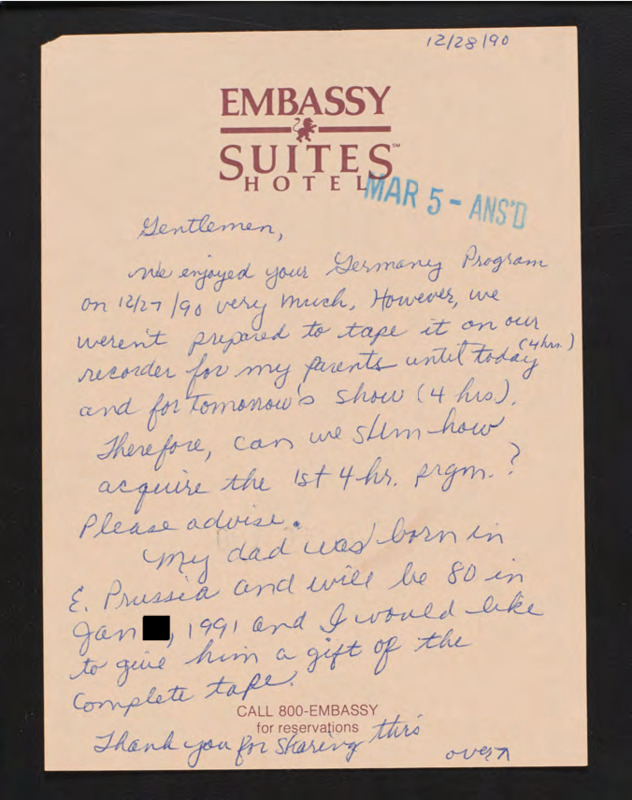 12/28/90
EMBASSY
SUITES™
HOTEL
MAR 5 - ANS'D
Gentlemen,
We enjoyed your Germany Program
on 12/27/90 very much. However, we
weren't prepared to tape it on our
recorder for my parents until today (4 hrs.)
and for tomorrow's show (4 hrs).
Therefore, can we sumhow
acquire the 1st 4 hr. prgm.?
Please advise.
My dad was born in
E. Prussia and will be 80 in
Jan , 1991 and I would like
to give him a gift of the
Complete tape.
CALL 800-EMBASSY
for reservations
Thank you for sharing this
over